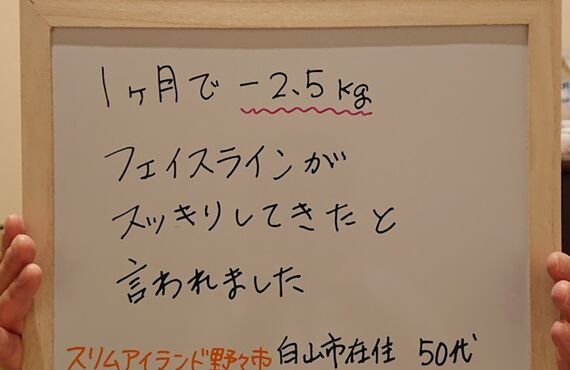 1ヶ月で −2.5kg
フェイスラインが
スッキリしてきたと
言われました
スリムアイランド野々市 白山市在住 50代